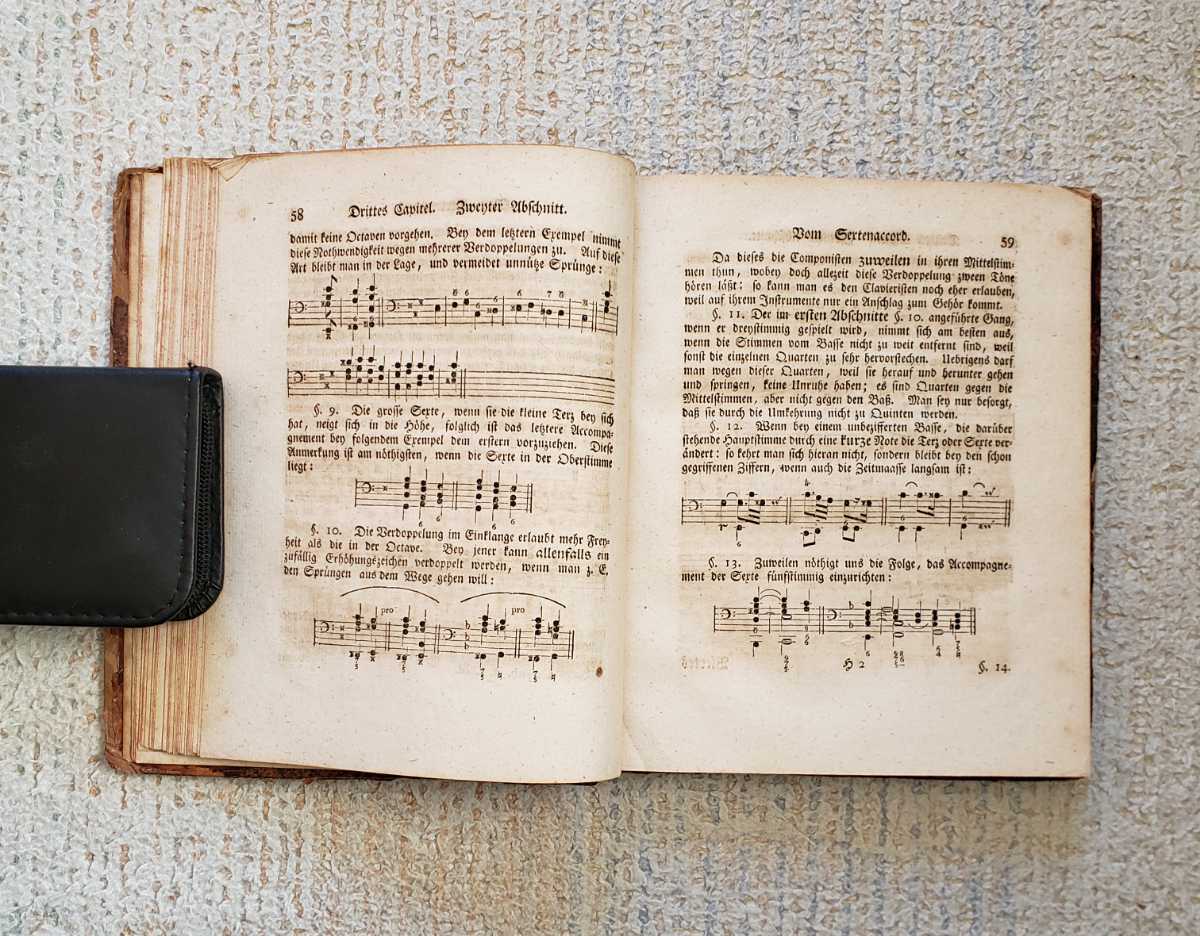 58 Drittes Capitel. Zweyter Abschnitt.
damit keine Octaven vorgehen. Bey dem letztern Exempel nimmt
diese Nothwendigkeit wegen mehrerer Verdoppelungen zu. Auf diese
Art bleibt man in der Lage, und vermeidet unnütze Sprünge:
§. 9. Die grosse Sexte, wenn sie die kleine Terz bey sich
hat, neigt sich in die Höhe, folglich ist das letztere Accompa-
gnement bey folgendem Exempel dem erstern vorzuziehen. Diese
Anmerkung ist am nöthigsten, wenn die Sexte in der Oberstimme
liegt:
§. 10. Die Verdoppelung im Einklange erlaubt mehr Frey-
heit als die in der Octave. Bey jener kann allenfalls ein
zufällig Erhöhungszeichen verdoppelt werden, wenn man z. E.
den Sprüngen aus dem Wege gehen will:
pro pro
Vom Sextenaccord. 59
Da dieses die Componisten zuweilen in ihren Mittelstim-
men thun, wobey doch allezeit diese Verdoppelung zween Töne
hören läßt: so kann man es den Clavieristen noch eher erlauben,
weil auf ihrem Instrumente nur ein Anschlag zum Gehör kommt.
§. 11. Der im ersten Abschnitte §. 10. angeführte Gang,
wenn er dreystimmig gespielt wird, nimmt sich am besten aus,
wenn die Stimmen vom Basse nicht zu weit entfernt sind, weil
sonst die einzelnen Quarten zu sehr hervorstechen. Uebrigens darf
man wegen dieser Quarten, weil sie herauf und herunter gehen
und springen, keine Unruhe haben; es sind Quarten gegen die
Mittelstimmen, aber nicht gegen den Baß. Man sey nur besorgt,
daß sie durch die Umkehrung nicht zu Quinten werden.
§. 12. Wenn bey einem unbezifferten Basse, die darüber
stehende Hauptstimme durch eine kurze Note die Terz oder Sexte ver-
ändert: so kehrt man sich hieran nicht, sondern bleibt bey den schon
gegriffenen Ziffern, wenn auch die Zeitmaasse langsam ist:
§. 13. Zuweilen nöthigt uns die Folge, das Accompagne-
ment der Sexte fünfstimmig einzurichten:
H 2 §. 14.